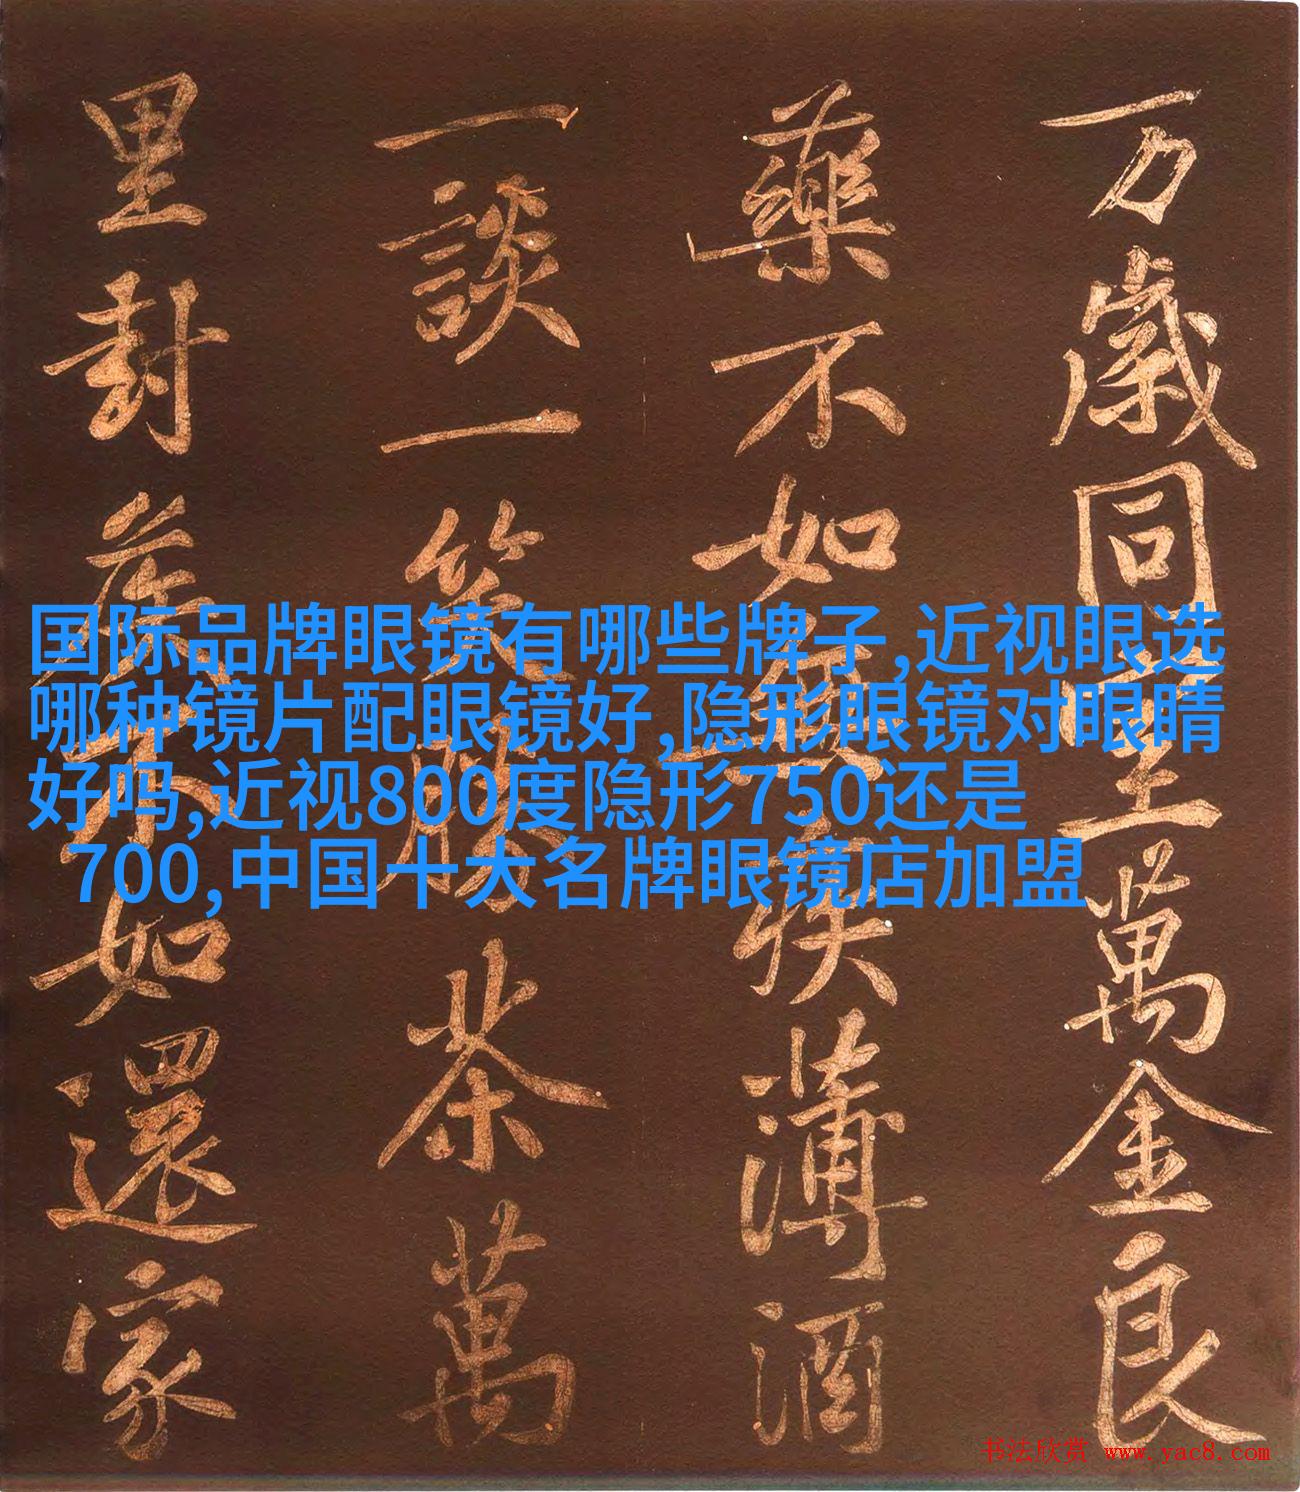 万歲同室萬金良
藥不如無疾薄酒
一談一笑勝茶萬
里封矦不如還家
国际品牌眼镜有哪些牌子,近视眼选
哪种镜片配眼镜好,隐形眼镜对眼睛
好吗,近视800度隐形750还是
700,中国十大名牌眼镜店加盟
书法欣赏 www.yac8.com